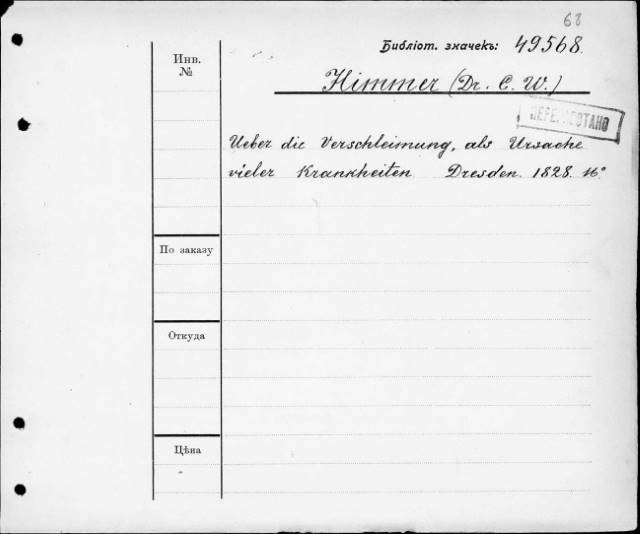 68
Библіот. значекъ: 49568.
Инв.
№
Himmer (Dr. C. W.)
Ueber die Verschleimung, als Ursache
vieler Krankheiten Dresden. 1828. 16°
По заказу
Откуда
Цѣна